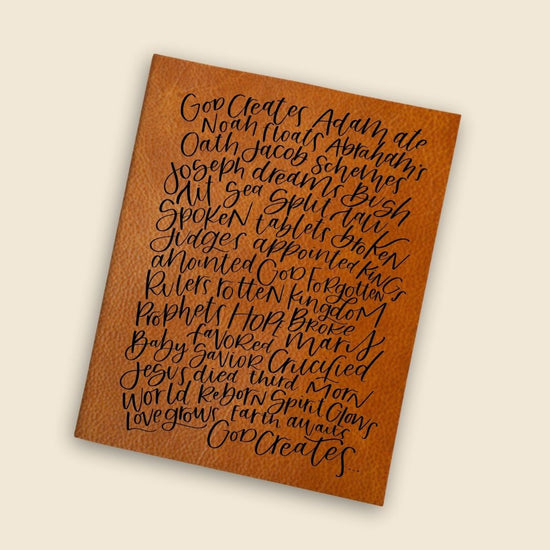 GOD CREATES ADAM ate
Noah floats Abraham's
Oath Jacob Schemes
Joseph dreams BUSH
lit Sea Split law
SPOKEN tablets broken
Judges appointed KINGS
anointed GOD FORGOTTEN
Rulers rotten kingdom
Prophets HOPE BROKE
favored Mary
Baby Savior Crucified
Jesus died third Morn
World Reborn Spirit Glows
Love grows Earth awaits
GOD CREATES...